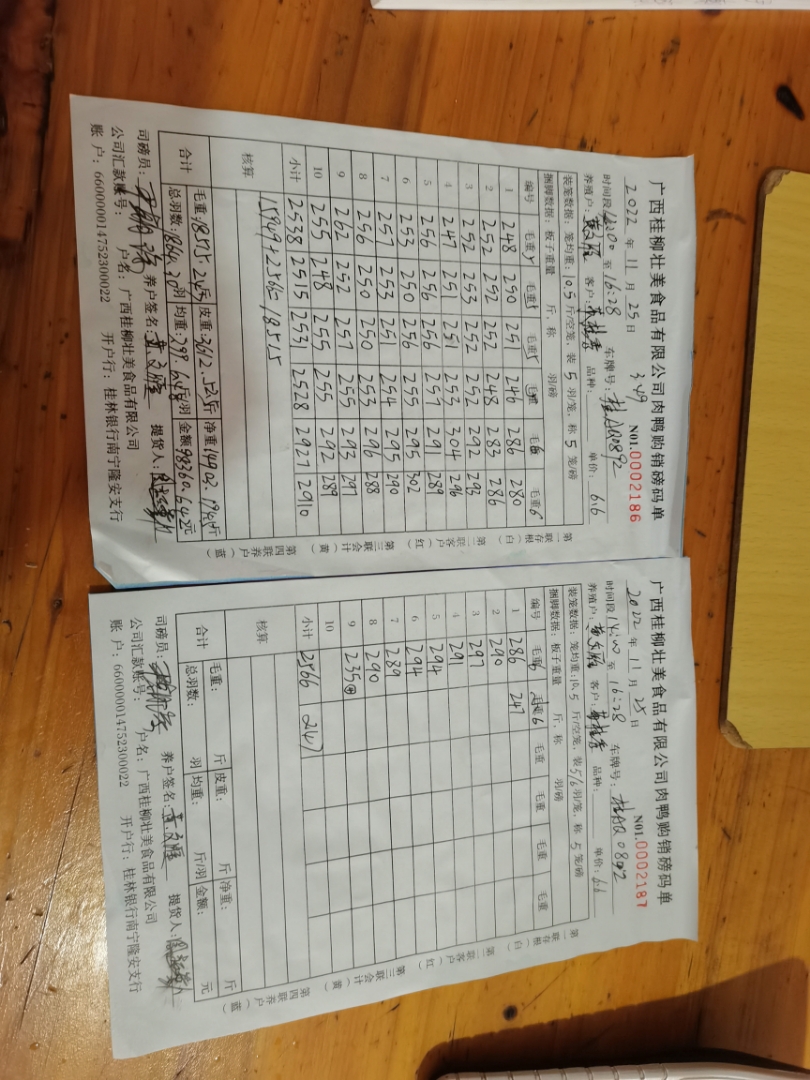 广西桂柳壮美食品有限公司肉鸭购销磅码单
2022 年 11 月 25 日 3.49 NO1.0002186
时间段 14:00 至 16:28 车牌号：桂AQ0892
养殖户： 客户： 品种： 单价：6.6
装笼数据：笼均重：10.5 斤/空笼，装 5 羽/笼，称 5 笼/磅
捆脚数据：板子重量 斤，称 羽/磅
编号 毛重5 毛重5 毛重5 毛重 毛重6 毛重6
1 248 250 251 246 286 280
2 252 252 252 248 283 286
3 252 253 252 252 292 293
4 247 251 251 253 304 296
5 256 256 256 257 291 289
6 253 250 256 255 295 302
7 257 253 251 254 295 290
8 256 250 250 253 296 288
9 262 252 257 255 293 297
10 255 248 255 255 292 289
小计 2538 2515 2531 2528 2927 2910
核算 15949+2566=18515
合计 毛重：18515.2斤 皮重：3612.52斤 净重：14902.19斤
总羽数：1864.20羽 均重：798.645斤/羽 金额：98360.64元
司磅员： 养户签名： 提货人：
公司汇款账号： 户名：广西桂柳壮美食品有限公司
账 户：660000014752300022 开户行：桂林银行南宁隆安支行
第一联（白） 存根
第二联（红） 客户
第三联（黄） 会计
第四联（蓝） 养户
广西桂柳壮美食品有限公司肉鸭购销磅码单
2022 年 11 月 25 日 NO1.0002187
时间段 14:00 至 16:28 车牌号：桂AQ0892
养殖户： 客户： 品种： 单价：6.6
装笼数据：笼均重：10.5 斤/空笼，装 5/6 羽/笼，称 5 笼/磅
捆脚数据：板子重量 斤，称 羽/磅
编号 毛重6 毛重6 毛重 毛重 毛重 毛重
1 286 247
2 290
3 297
4 291
5 294
6 294
7 289
8 290
9 235④
10
小计 2566 247
核算
合计 毛重： 斤 皮重： 斤 净重： 斤
总羽数： 羽 均重： 斤/羽 金额： 元
司磅员： 养户签名： 提货人：
公司汇款账号： 户名：广西桂柳壮美食品有限公司
账 户：660000014752300022 开户行：桂林银行南宁隆安支行
第一联（白） 存根
第二联（红） 客户
第三联（黄） 会计
第四联（蓝） 养户